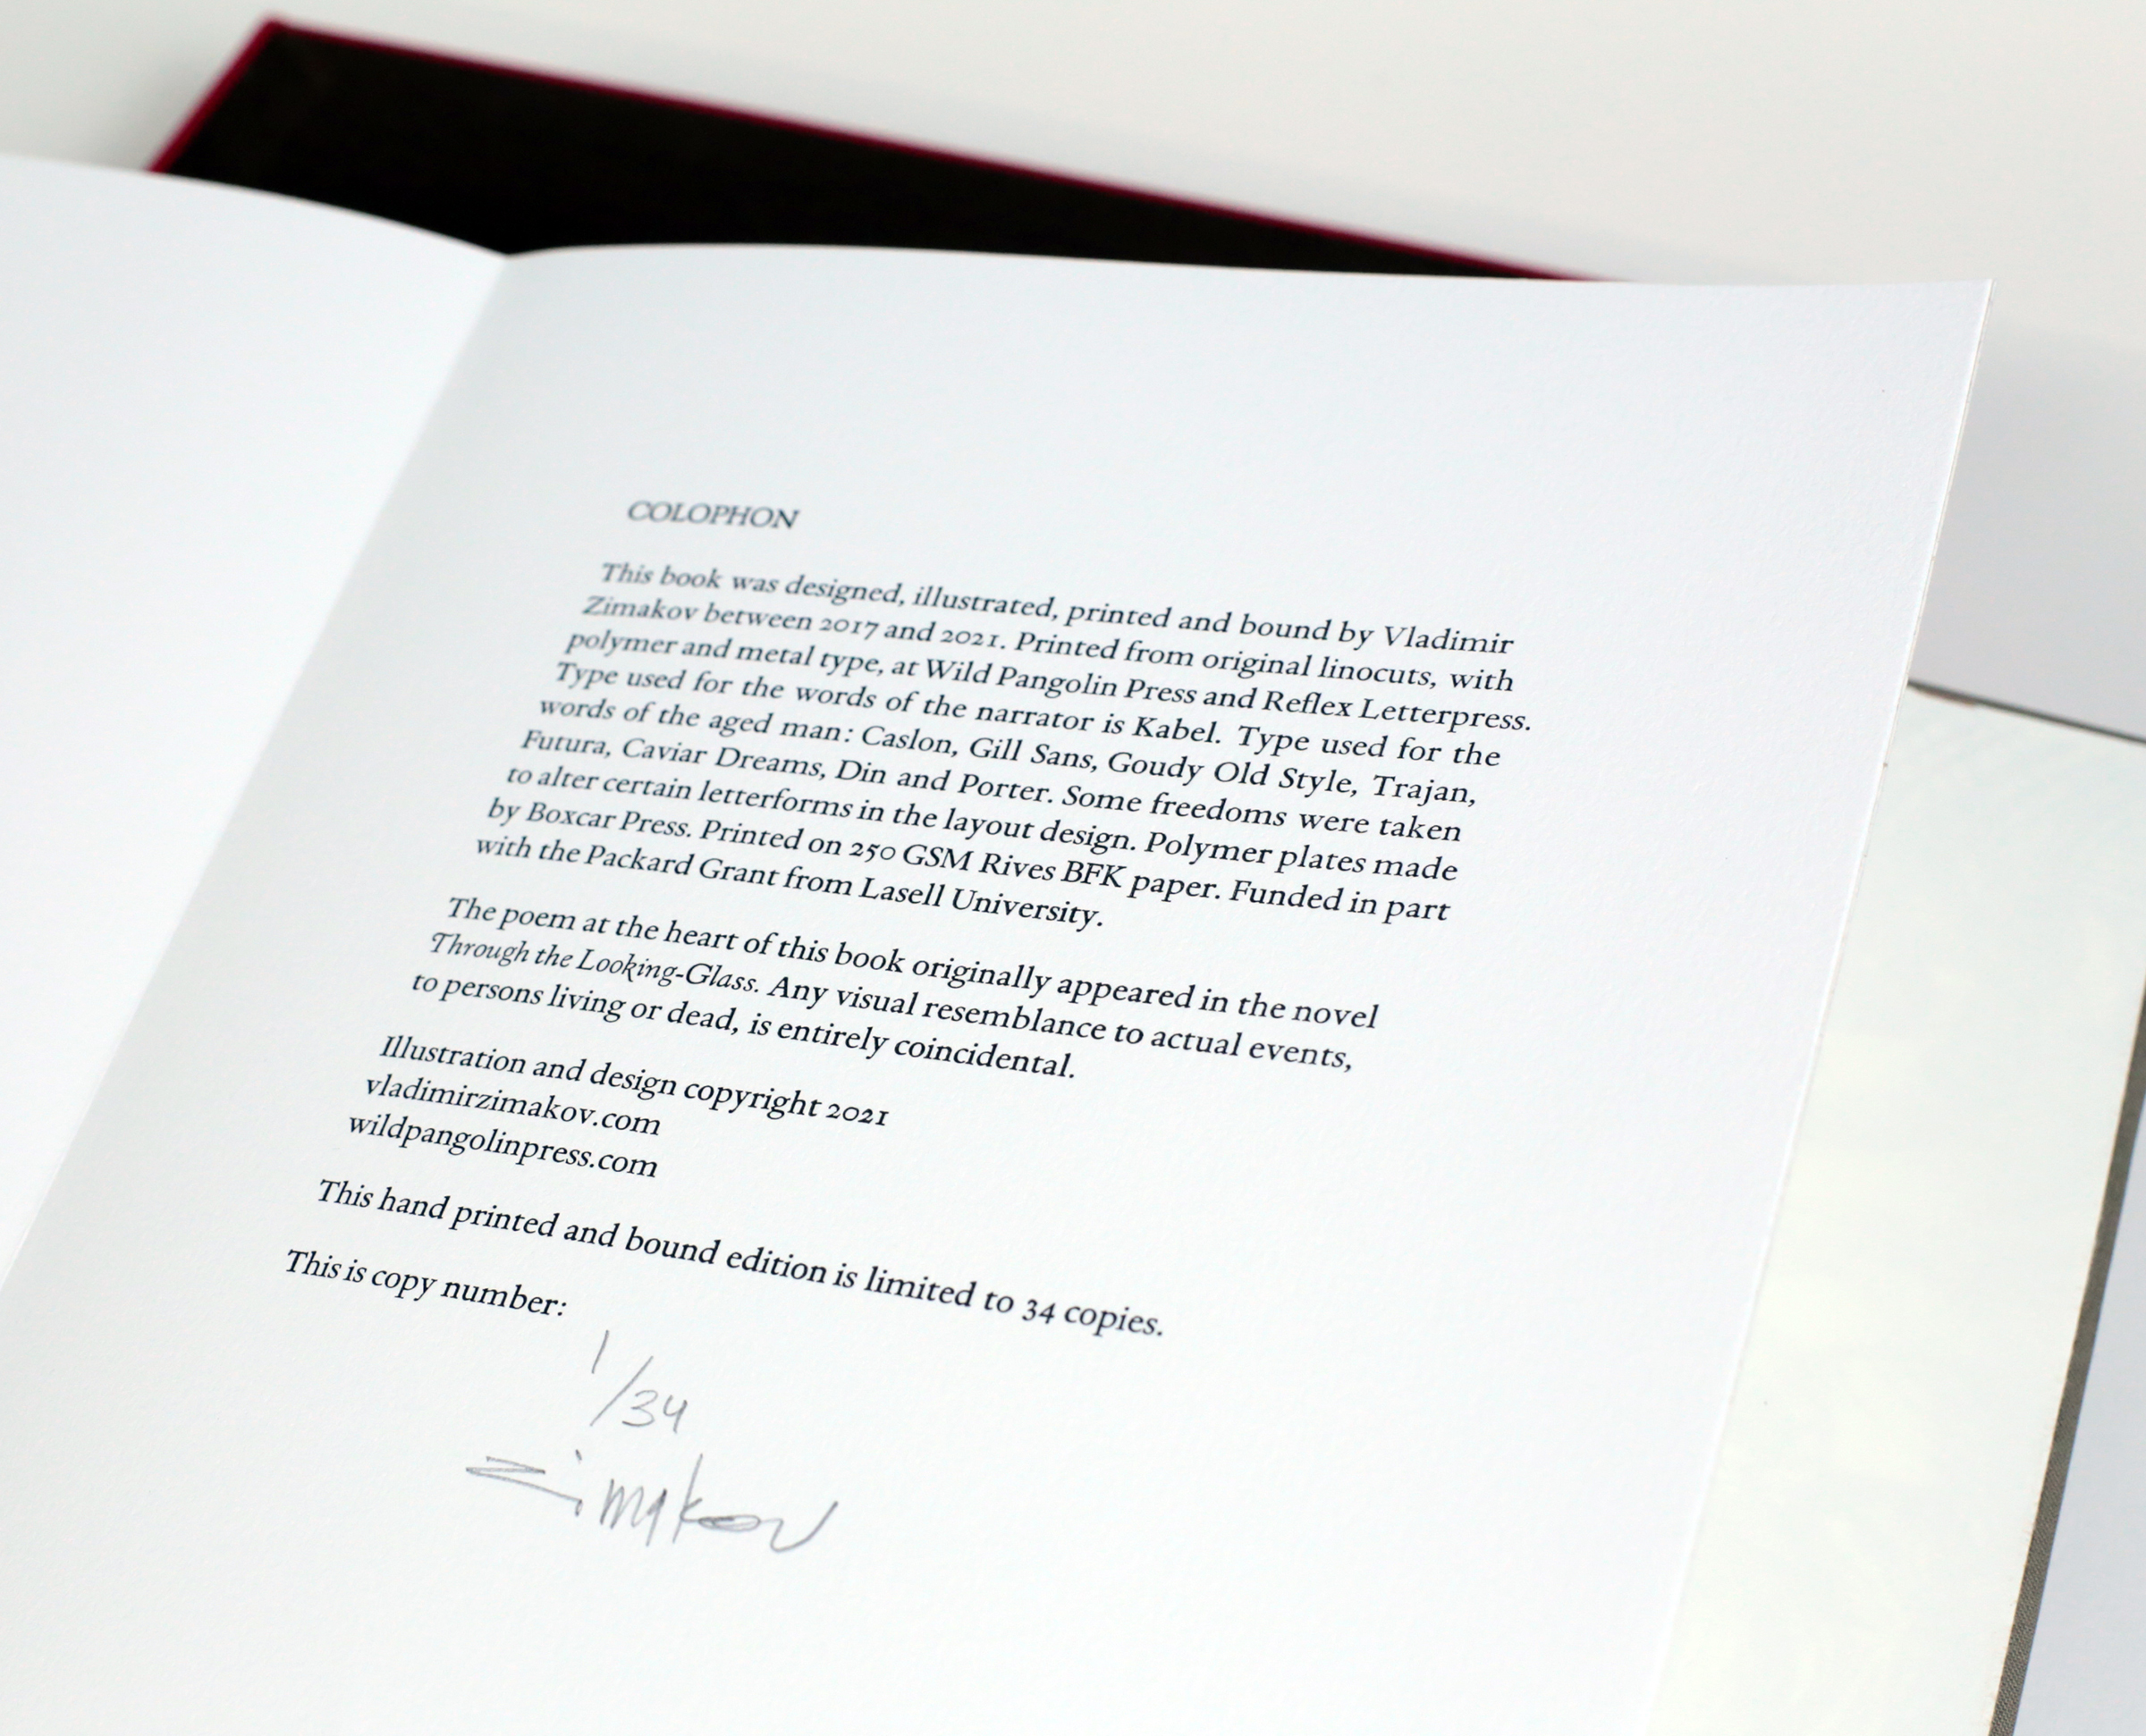 COLOPHON
This book was designed, illustrated, printed and bound by Vladimir
Zimakov between 2017 and 2021. Printed from original linocuts, with
polymer and metal type, at Wild Pangolin Press and Reflex Letterpress.
Type used for the words of the narrator is Kabel. Type used for the
words of the aged man: Caslon, Gill Sans, Goudy Old Style, Trajan,
Futura, Caviar Dreams, Din and Porter. Some freedoms were taken
to alter certain letterforms in the layout design. Polymer plates made
by Boxcar Press. Printed on 250 GSM Rives BFK paper. Funded in part
with the Packard Grant from Lasell University.
The poem at the heart of this book originally appeared in the novel
Through the Looking-Glass. Any visual resemblance to actual events,
to persons living or dead, is entirely coincidental.
Illustration and design copyright 2021
vladimirzimakov.com
wildpangolinpress.com
This hand printed and bound edition is limited to 34 copies.
This is copy number:
1/34
Zimakov